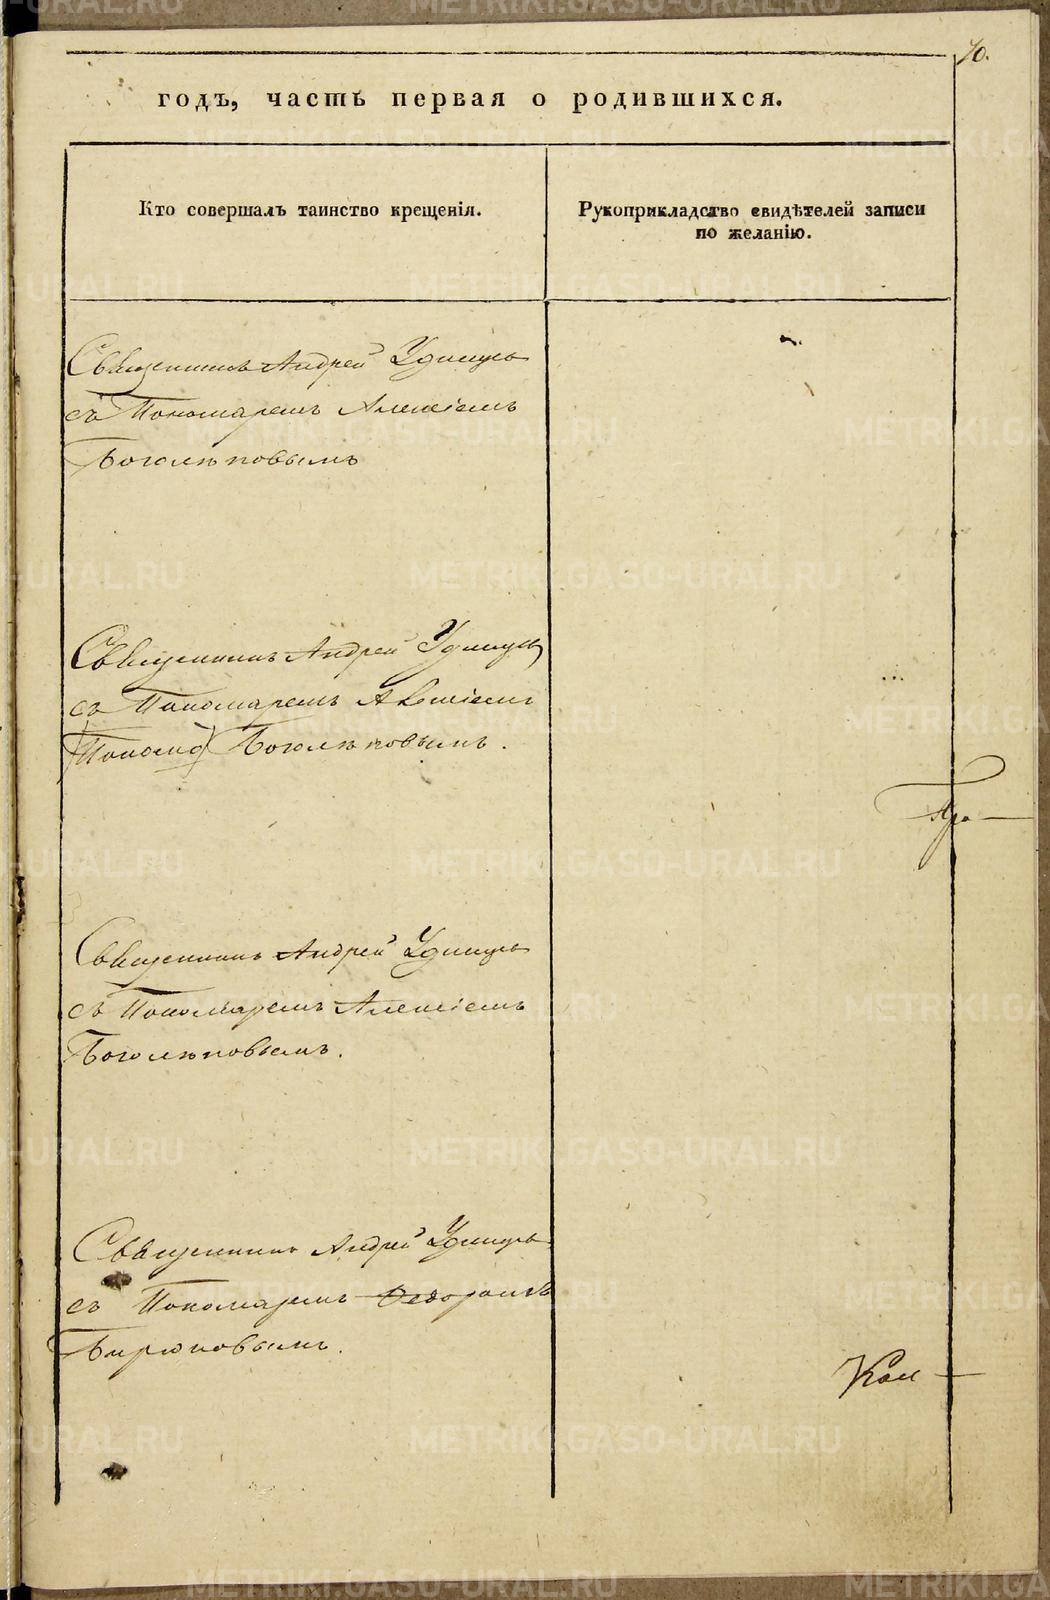 70.
годъ, часть первая о родившихся.
Кто совершалъ таинство крещенія.
Рукоприкладство свидѣтелей записи
по желанію.
Священникъ Андрей Удинцъ
съ Пономаремъ Алексіемъ
Боголѣповымъ
Священникъ Андрей Удинцъ
съ Пономаремъ Алексіемъ
(Пономо) Боголѣповымъ.
Священникъ Андрей Удинцъ
съ Пономаремъ Алексіемъ
Боголѣповымъ.
Священникъ Андрей Удинцъ
съ Пономаремъ Ѳедоромъ
Бирюковымъ.
Кол—
METRIKI.GASO-URAL.RU